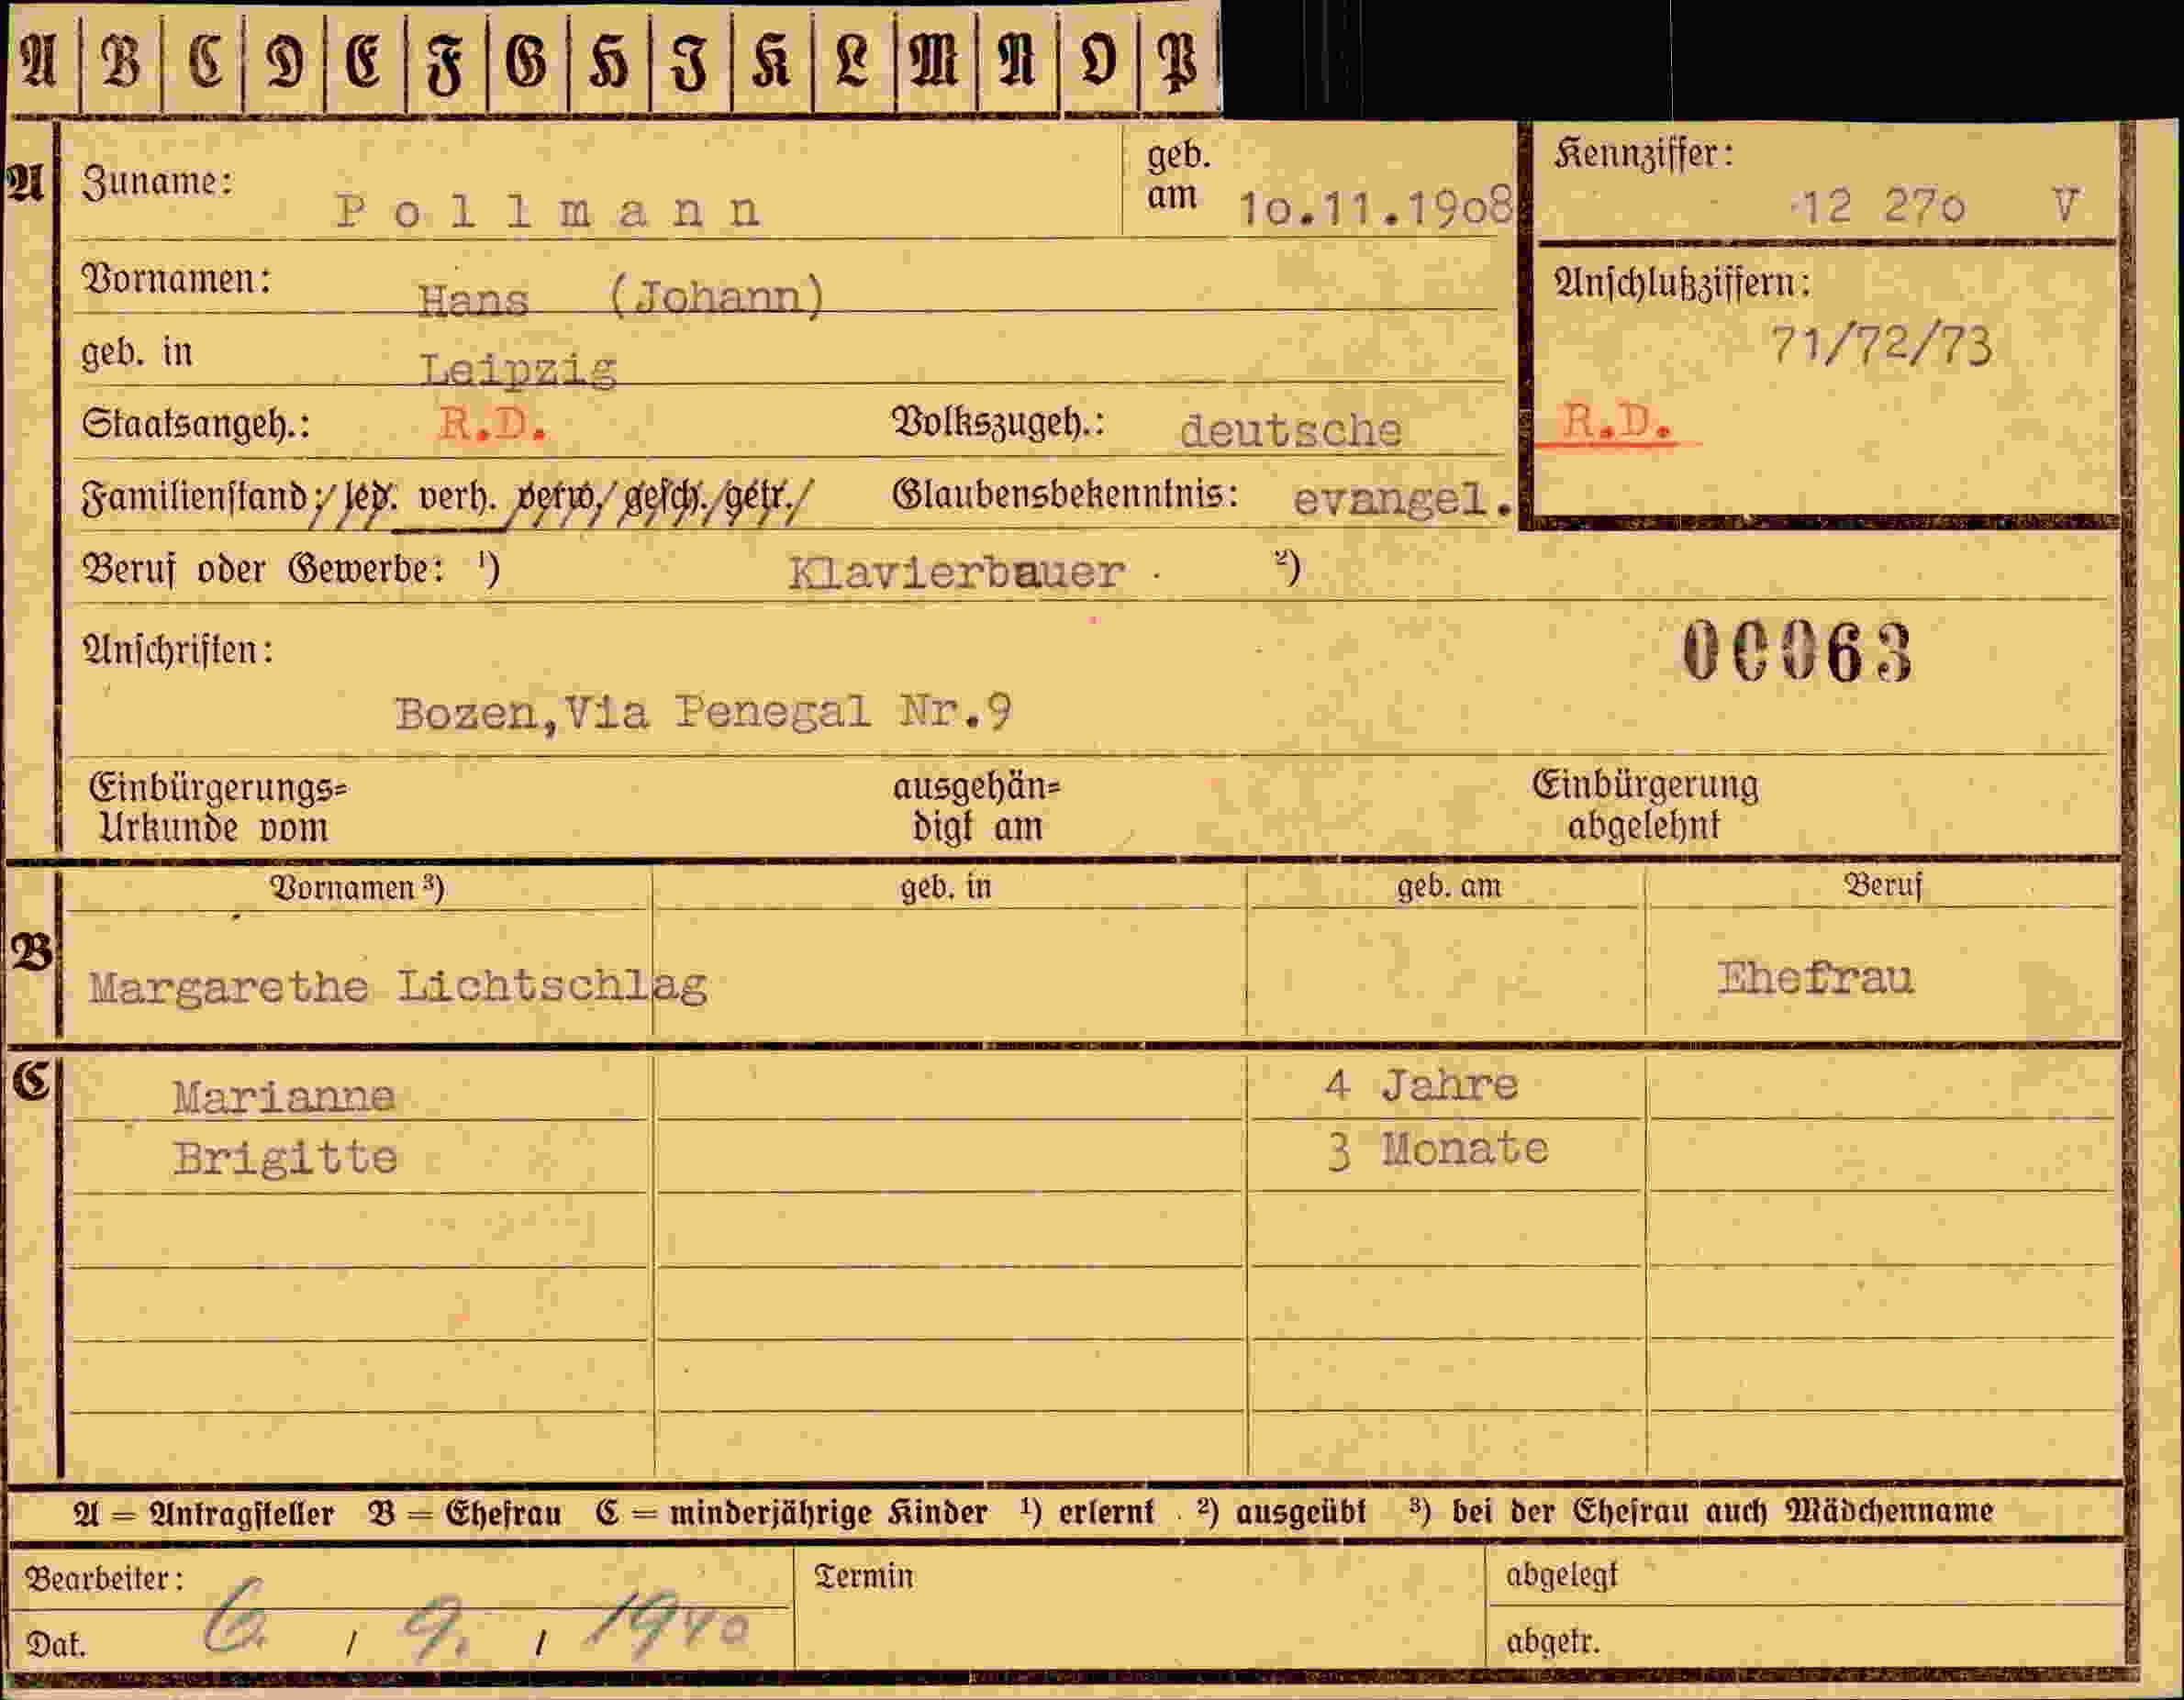 A B C D E F G H I K L M N O P
A Zuname: Pollmann geb. am 10.11.1908 Kennziffer: 12 270 V
Vornamen: Hans (Johann) Anschlußziffern:
71/72/73
geb. in Leipzig
Staatsangeh.: R.D. Volkszugeh.: deutsche R.D.
Familienstand: led. verh. verw. gesch. getr. Glaubensbekenntnis: evangel.
Beruf oder Gewerbe: ¹) Klavierbauer ²)
Anschriften: 00063
Bozen,Via Penegal Nr.9
Einbürgerungs= ausgehän= Einbürgerung
Urkunde vom digt am abgelehnt
B Vornamen ³) geb. in geb. am Beruf
Margarethe Lichtschlag Ehefrau
C Marianne 4 Jahre
Brigitte 3 Monate
A = Antragsteller B = Ehefrau C = minderjährige Kinder ¹) erlernt ²) ausgeübt ³) bei der Ehefrau auch Mädchenname
Bearbeiter: Termin abgelegt
Dat. 6. / 9. / 1940 abgetr.